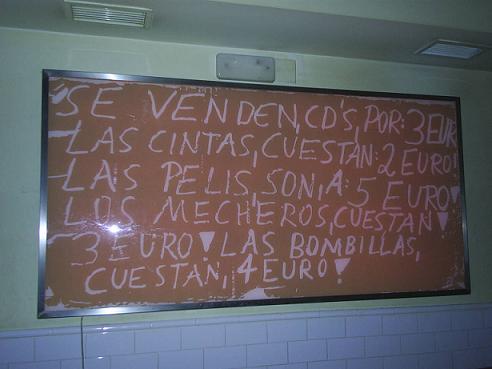 SE VENDEN, CD'S, POR: 3 EUR
LAS CINTAS, CUESTAN: 2 EURO!
LAS PELIS, SON, A: 5 EURO!
LOS MECHEROS, CUESTAN!
3 EURO! LAS BOMBILLAS,
CUESTAN, 4 EURO!